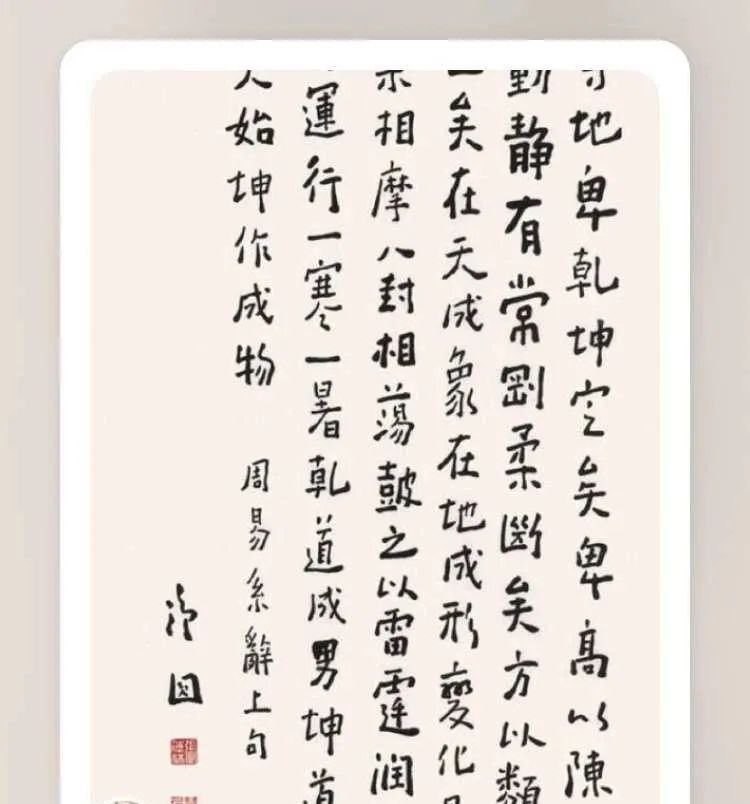 地卑乾坤定矣卑高以陳
動靜有常剛柔斷矣方以類
矣在天成象在地成形變化
相摩八封相蕩鼓之以雷霆潤
運行一寒一暑乾道成男坤道
始坤作成物
周易系辭上句